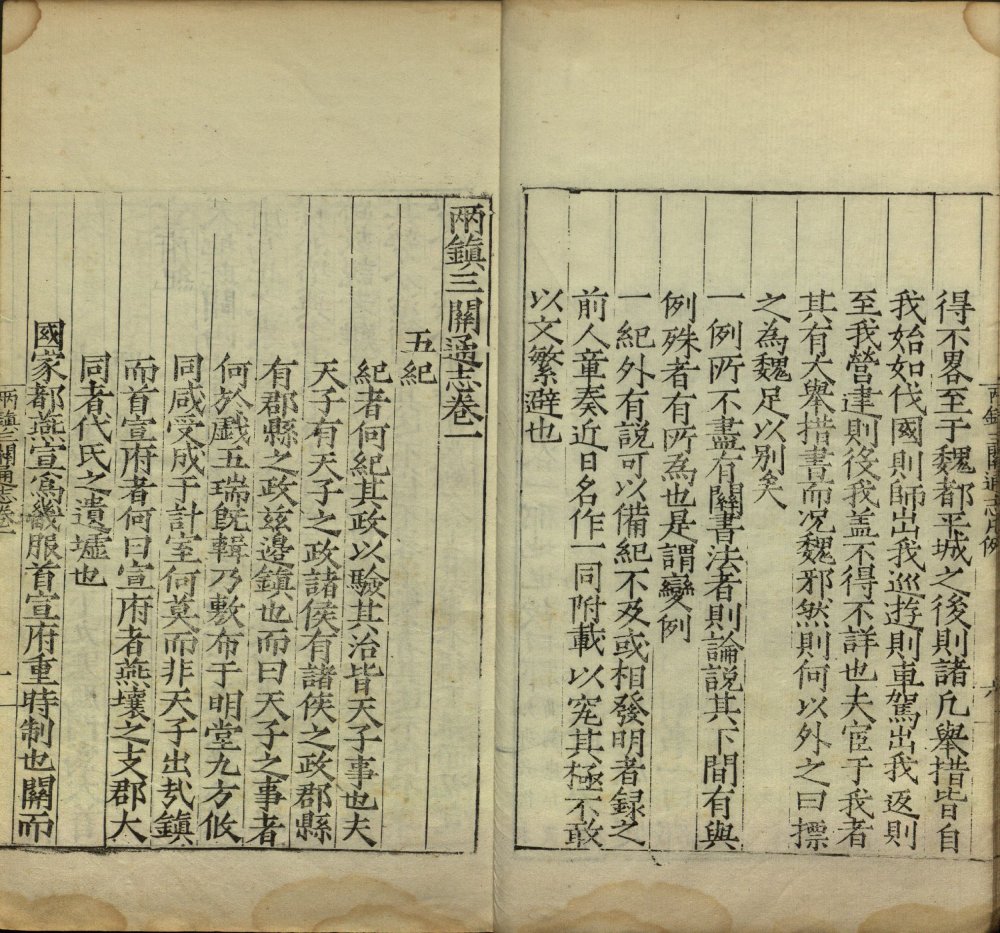 得不畧至于魏都平城之後則諸凡舉措皆自
我始如代國則師出我巡遊則車駕出我返則
至我營建則後我盖不得不詳也夫宦于我者
其有大舉措書而况魏邪然則何以外之曰摽
之為魏足以别矣
一例所不盡有關書法者則論説其下間有與
例殊者有所為也是謂變例
一紀外有説可以備紀不及或相發明者録之
前人章奏近日名作一同附載以究其極不敢
以文繁避也
兩鎮三關通志卷一
五紀
紀者何紀其政以驗其治皆天子事也夫
天子有天子之政諸侯有諸侯之政郡縣
有郡縣之政兹邊鎮也而曰天子之事者
何於戯五瑞旣輯乃敷布于明堂九方攸
同咸受成于計室何莫而非天子出㢤鎮
而首宣府者何曰宣府者燕壤之支郡大
同者代氏之遺墟也
國家都燕宣爲畿服首宣府重時制也關而
兩鎮三關通志卷一
一